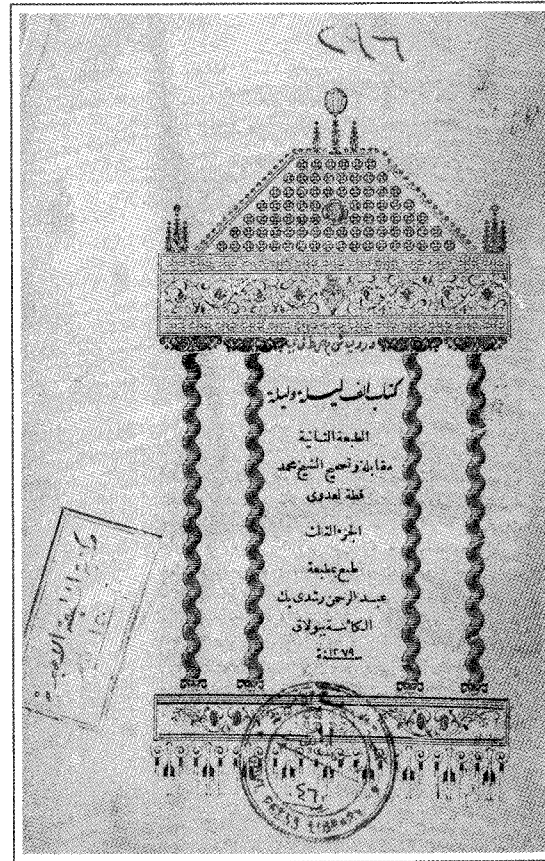 كتاب الف ليلة وليلة
الطبعة الثانية
مقابلة وتصحيح الشيخ محمد
قطة لعدوى
الجزء الثالث
طبع بمطبعة
عبد الرحمن رشدى بك
الكائنة ببولاق
سنة ١٢٧٩
٤٦